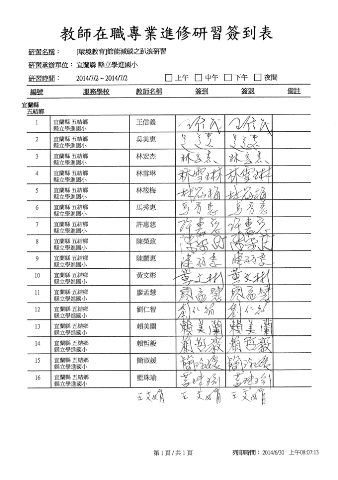 教師在職專業進修研習簽到表
研習名稱： [環境教育]節能減碳之趴浪研習
研習承辦單位： 宜蘭縣 縣立學進國小
研習時間： 2014/7/2 ~ 2014/7/2 □上午 □中午 □下午 □夜間
編號 服務學校 教師名稱 簽到 簽退 備註
宜蘭縣
五結鄉
1 宜蘭縣 五結鄉 縣立學進國小 王信義
2 宜蘭縣 五結鄉 縣立學進國小 吳美惠
3 宜蘭縣 五結鄉 縣立學進國小 林宏杰
4 宜蘭縣 五結鄉 縣立學進國小 林雪琳 林雪琳 林雪琳
5 宜蘭縣 五結鄉 縣立學進國小
6 宜蘭縣 五結鄉 縣立學進國小
7 宜蘭縣 五結鄉 縣立學進國小 許惠慈 許惠慈 許惠慈
8 宜蘭縣 五結鄉 縣立學進國小 陳榮政
9 宜蘭縣 五結鄉 縣立學進國小
10 宜蘭縣 五結鄉 縣立學進國小 黃文彬 黃文彬 黃文彬
11 宜蘭縣 五結鄉 縣立學進國小 廖孟慧
12 宜蘭縣 五結鄉 縣立學進國小 劉仁智
13 宜蘭縣 五結鄉 縣立學進國小 賴美蘭 賴美蘭 賴美蘭
14 宜蘭縣 五結鄉 縣立學進國小 賴哲毅
15 宜蘭縣 五結鄉 縣立學進國小 簡淑媛
16 宜蘭縣 五結鄉 縣立學進國小 藍珠瑜
王文娟 王文娟 王文娟
第 1 頁 / 共 1 頁 列印時間： 2014/6/30 上午08:07:13